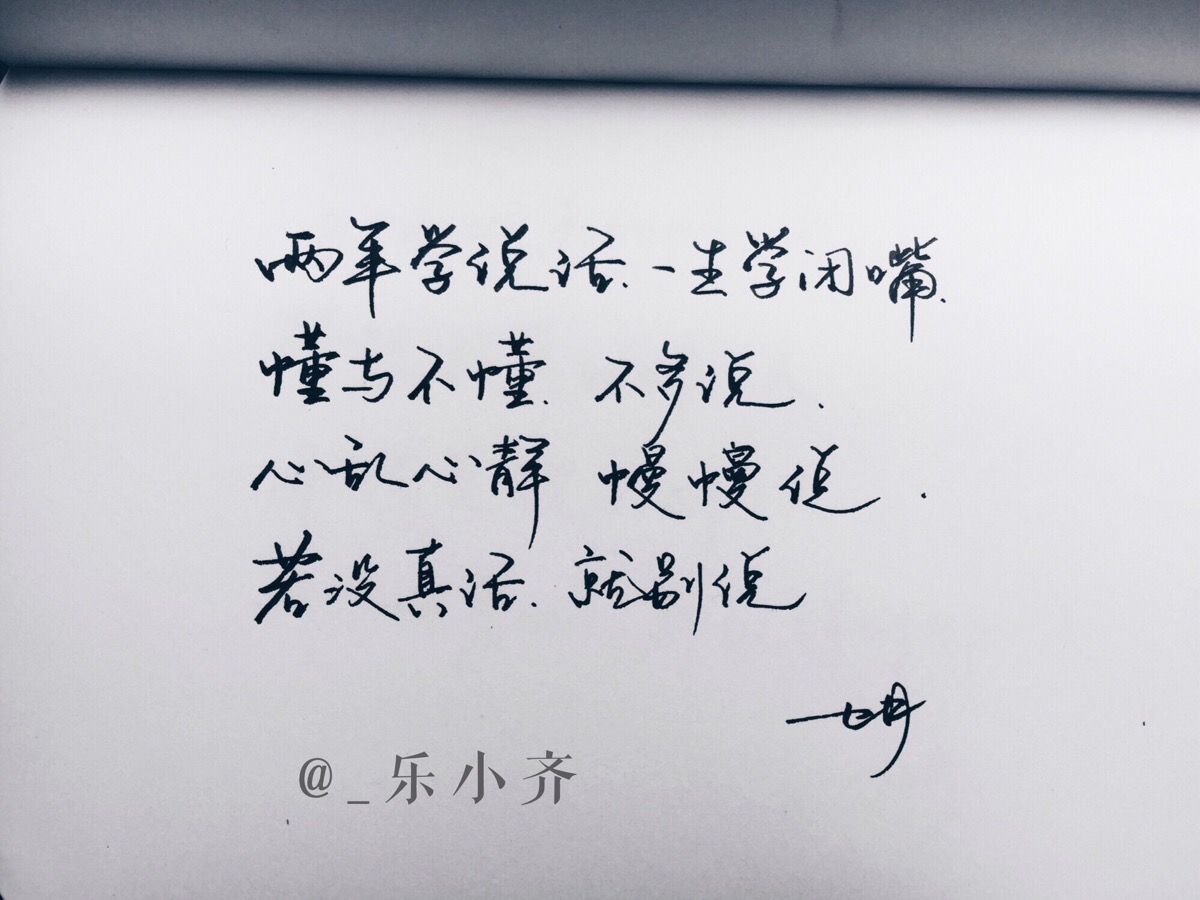 两年学说话、一生学闭嘴、
懂与不懂、不多说.
心乱心静 慢慢说.
若没真话、就别说
@_乐小齐